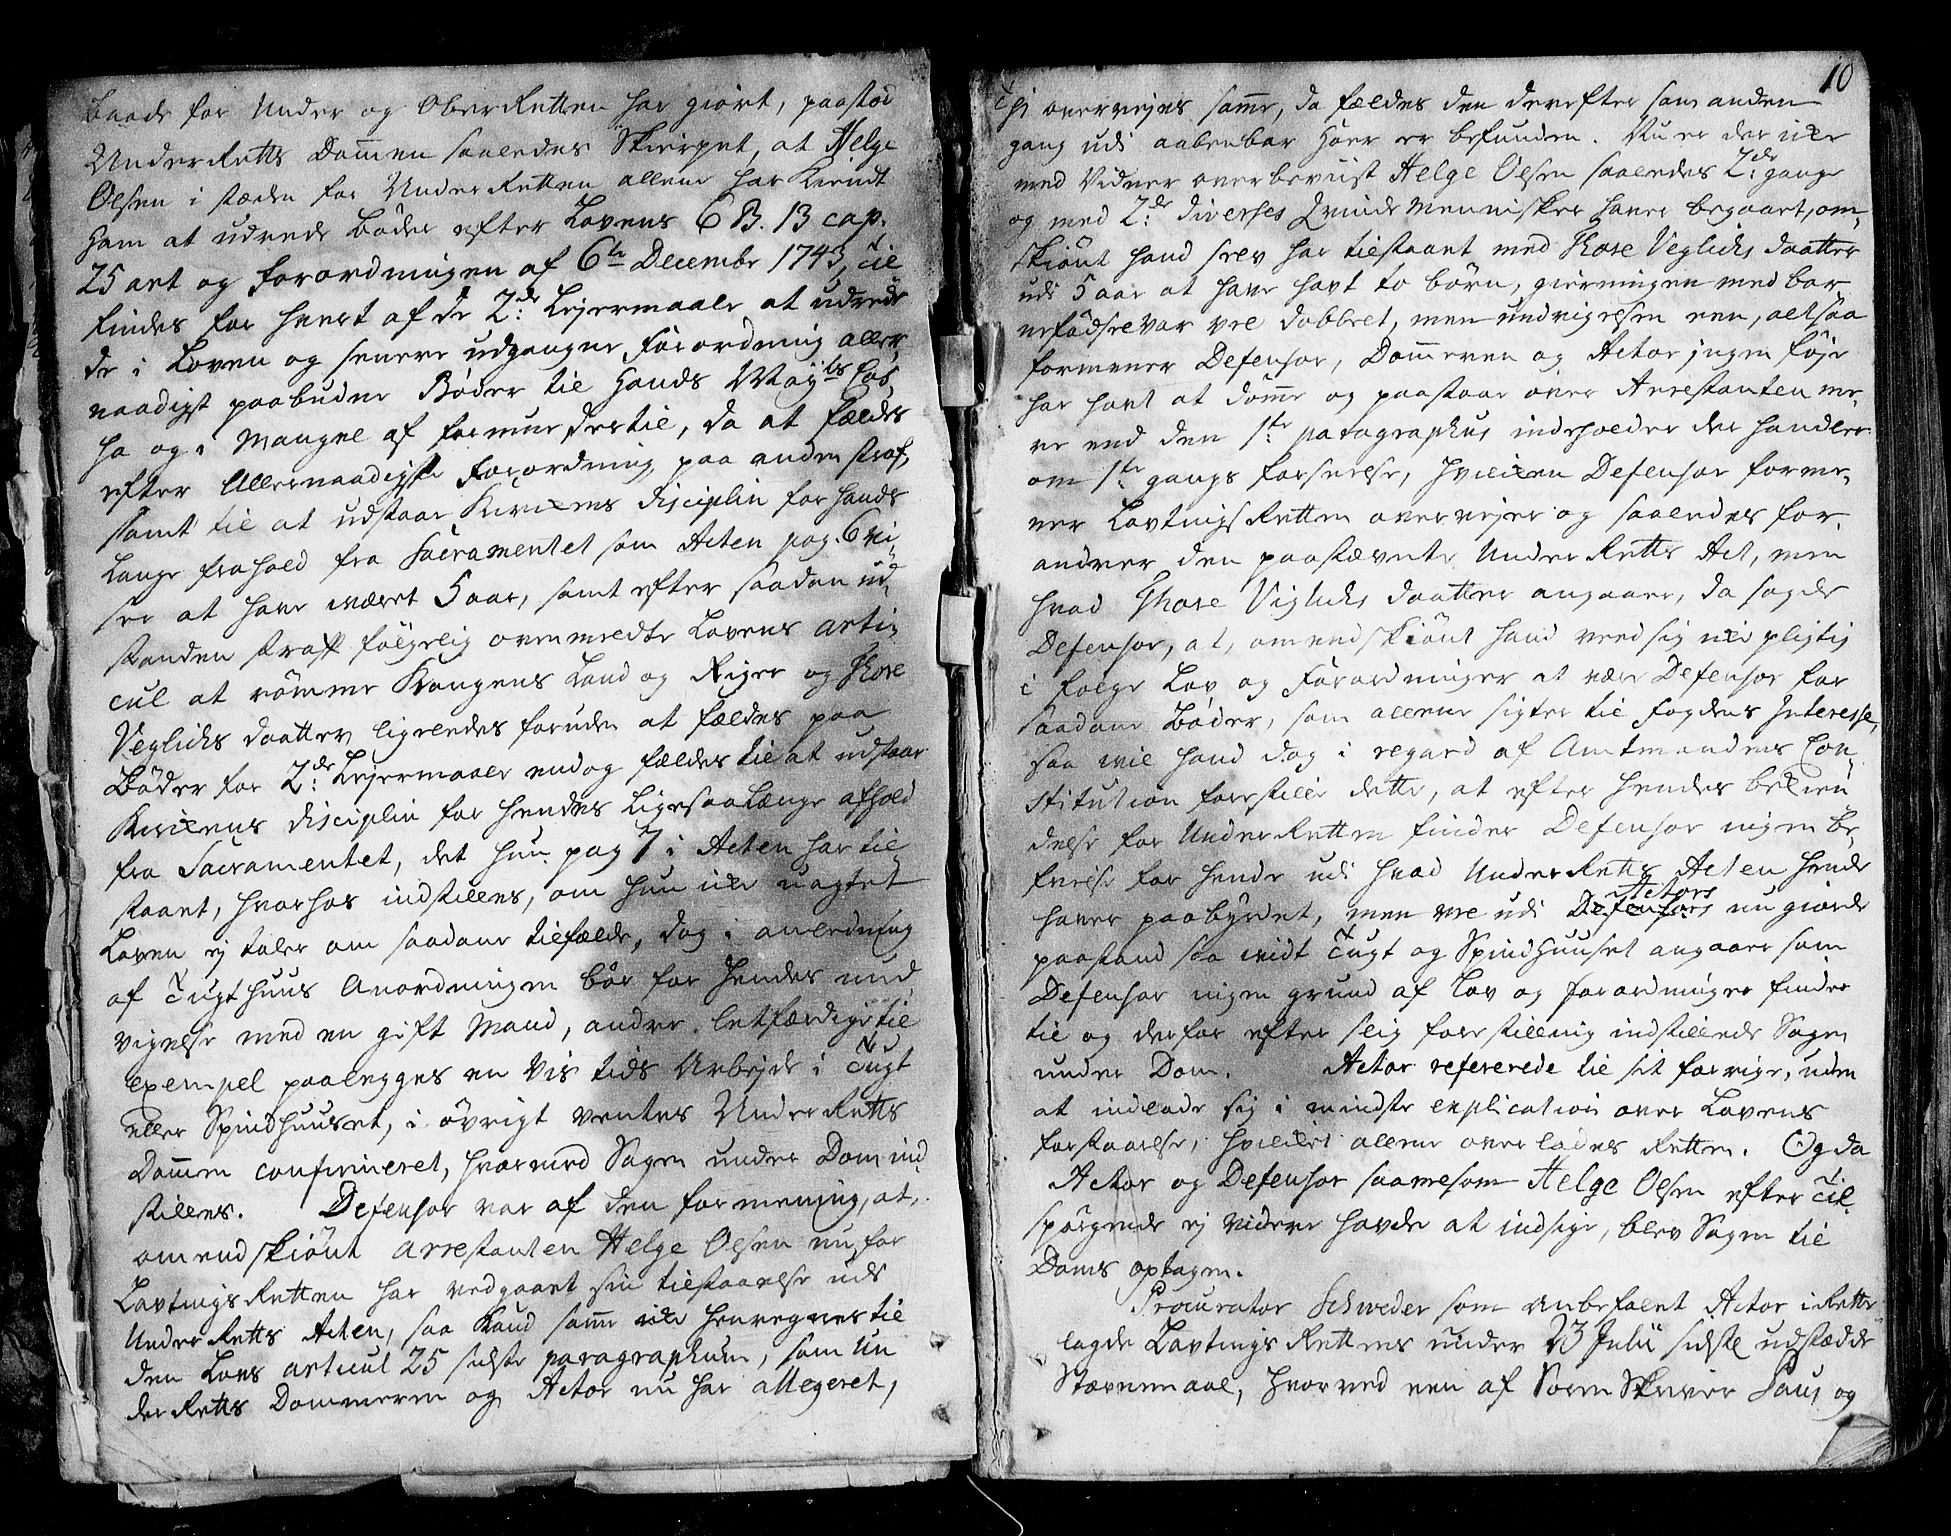 baade for Under og OberRetten har giört, paastod
UnderRetts Dommen saaledes Skierpet, at Helge
Olsen i stæden for UnderRetten allene har kiendt
ham at udrede bøder efter Lovens 6 B. 13 cap.
25 art og forordningen af 6te Decembr 1743, til
findes for hvert af de 2de Lejermaale at udrede
de i Loven og senere udgangne forordning aller
naadigst paabudne Bøder til Hands Mayts Cas
sa og i Mangel af formue dertil, da at fældes
efter Allernaadigste forordning paa anden straf,
samt til at udstaae Kirkens disciplin for hands
lange frahold fra Sacramentet som Acten pag. 6 vi
ser at have været 5 aar, samt efter saadan ud
standen straff følgelig ovenmeldte Lovens arti
cul at römme Kongens Land og Riger og Thore
Veglichs daatter ligeledes foruden at fældes paa
bøder for 2de Lejermaale endog fældes til at udstaae
Kirkens disciplin for hendes ligesaalænge afhold
fra Sacramentet, det hun pag 7 i Acten har til
staaet, hvorhos indstilles, om hun ike uagtet
Loven ej taler om saadane tilfælde, dog i anledning
af Tugthuus Anordningen bör for hendes und
vigelse med en gift Mand, andre letfærdige til
exempel paalegges en vis tids Arbejde i Tugt
eller Spindhuuset, i övrigt ventes UnderRetts
Dommen confirmeret, hvormed Sagen under Dom ind
stilles. Defensor var af den formening, at,
omendskiönt Arrestanten Helge Olsen nu for
LavtingsRetten har vedgaaet sin tilstaaelse udi
UnderRetts Acten, saa kand samme ike henregnes til
den Lovs articul 25 sidste paragraphum, som Un
derRetts Dommeren og Actor nu har allegeret,
10
thi overvejes samme, da fældes den derefter som anden
gang udi aabenbar Hoer er befunden. Nu er der ike
med Vidner overbeviist Helge Olsen saaledes 2de gange
og med 2de diverses Qvinde Mennisker haver begaaet, om
skiönt hand selv har tilstaaet med Thore Veglichs daatter
udi 5 aar at have havt to börn, gierningen med bar
nefödsel var vel dobbelt, men undvigelsen een, altsaa
formener Defensor, Dommeren og Actor ingen föje
har havt at dömme og paastaae over Arrestanten me
re end den 1ste paragraphus indeholder der handler
om 1ste gangs forseelse, hvilken Defensor forme
ner LavtingsRetten overvejer og saaledes for
andrer den paastævnte UnderRetts Act, men
hvad Thore Viglichs daatter angaaer, da sagde
Defensor, at, omendskiönt hand veed sig ike pligtig
i følge Lov og Forordninger at være Defensor for
saadane Bøder, som allene sigter til fogdens Interesse,
saa vil hand dog i regard af Amtmandens Con
stitution forestille dette, at efter hendes bekien
delse for UnderRetten finder Defensor ingen be
frielse for hende udi hvad UnderRetts Acten hende
haver paabyrdet, men vel udi Defensors Actors nu giorde
paastand saa vidt Tugt og Spindhuuset angaaer som
Defensor ingen grund af Lov og forordninger finder
til og derfor efter slig forestilling indstillede Sagen
under Dom. Actor refererede til sit forrige, uden
at indlade sig i mindste explication over Lovens
forstaaelse, hvilket allene overlades Retten. Og da
Actor og Defensor saavelsom Helge Olsen efter til
spørgende ej videre havde at indsige, blev Sagen til
Doms optagen.
Procurator Schweder som anbefalet Actor i Rette
lagde LavtingsRettens under 23 Julii sidstl udstædde
Stævnemaal, hvorved een af Soren Skriver Paus og